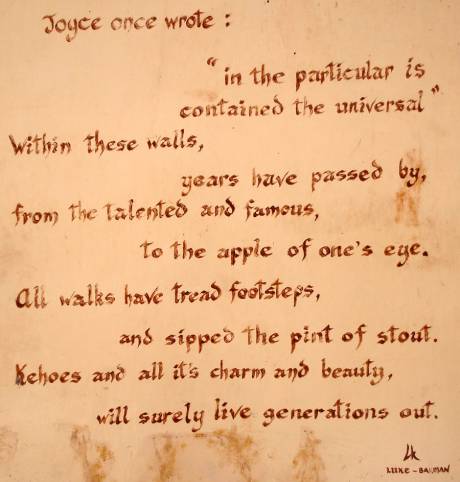 Joyce once wrote :
" in the particular is
contained the universal "
Within these walls,
years have passed by,
from the talented and famous,
to the apple of one's eye.
All walks have tread footsteps,
and sipped the pint of stout.
Kehoes and all it's charm and beauty,
will surely live generations out.
LK
LUKE -